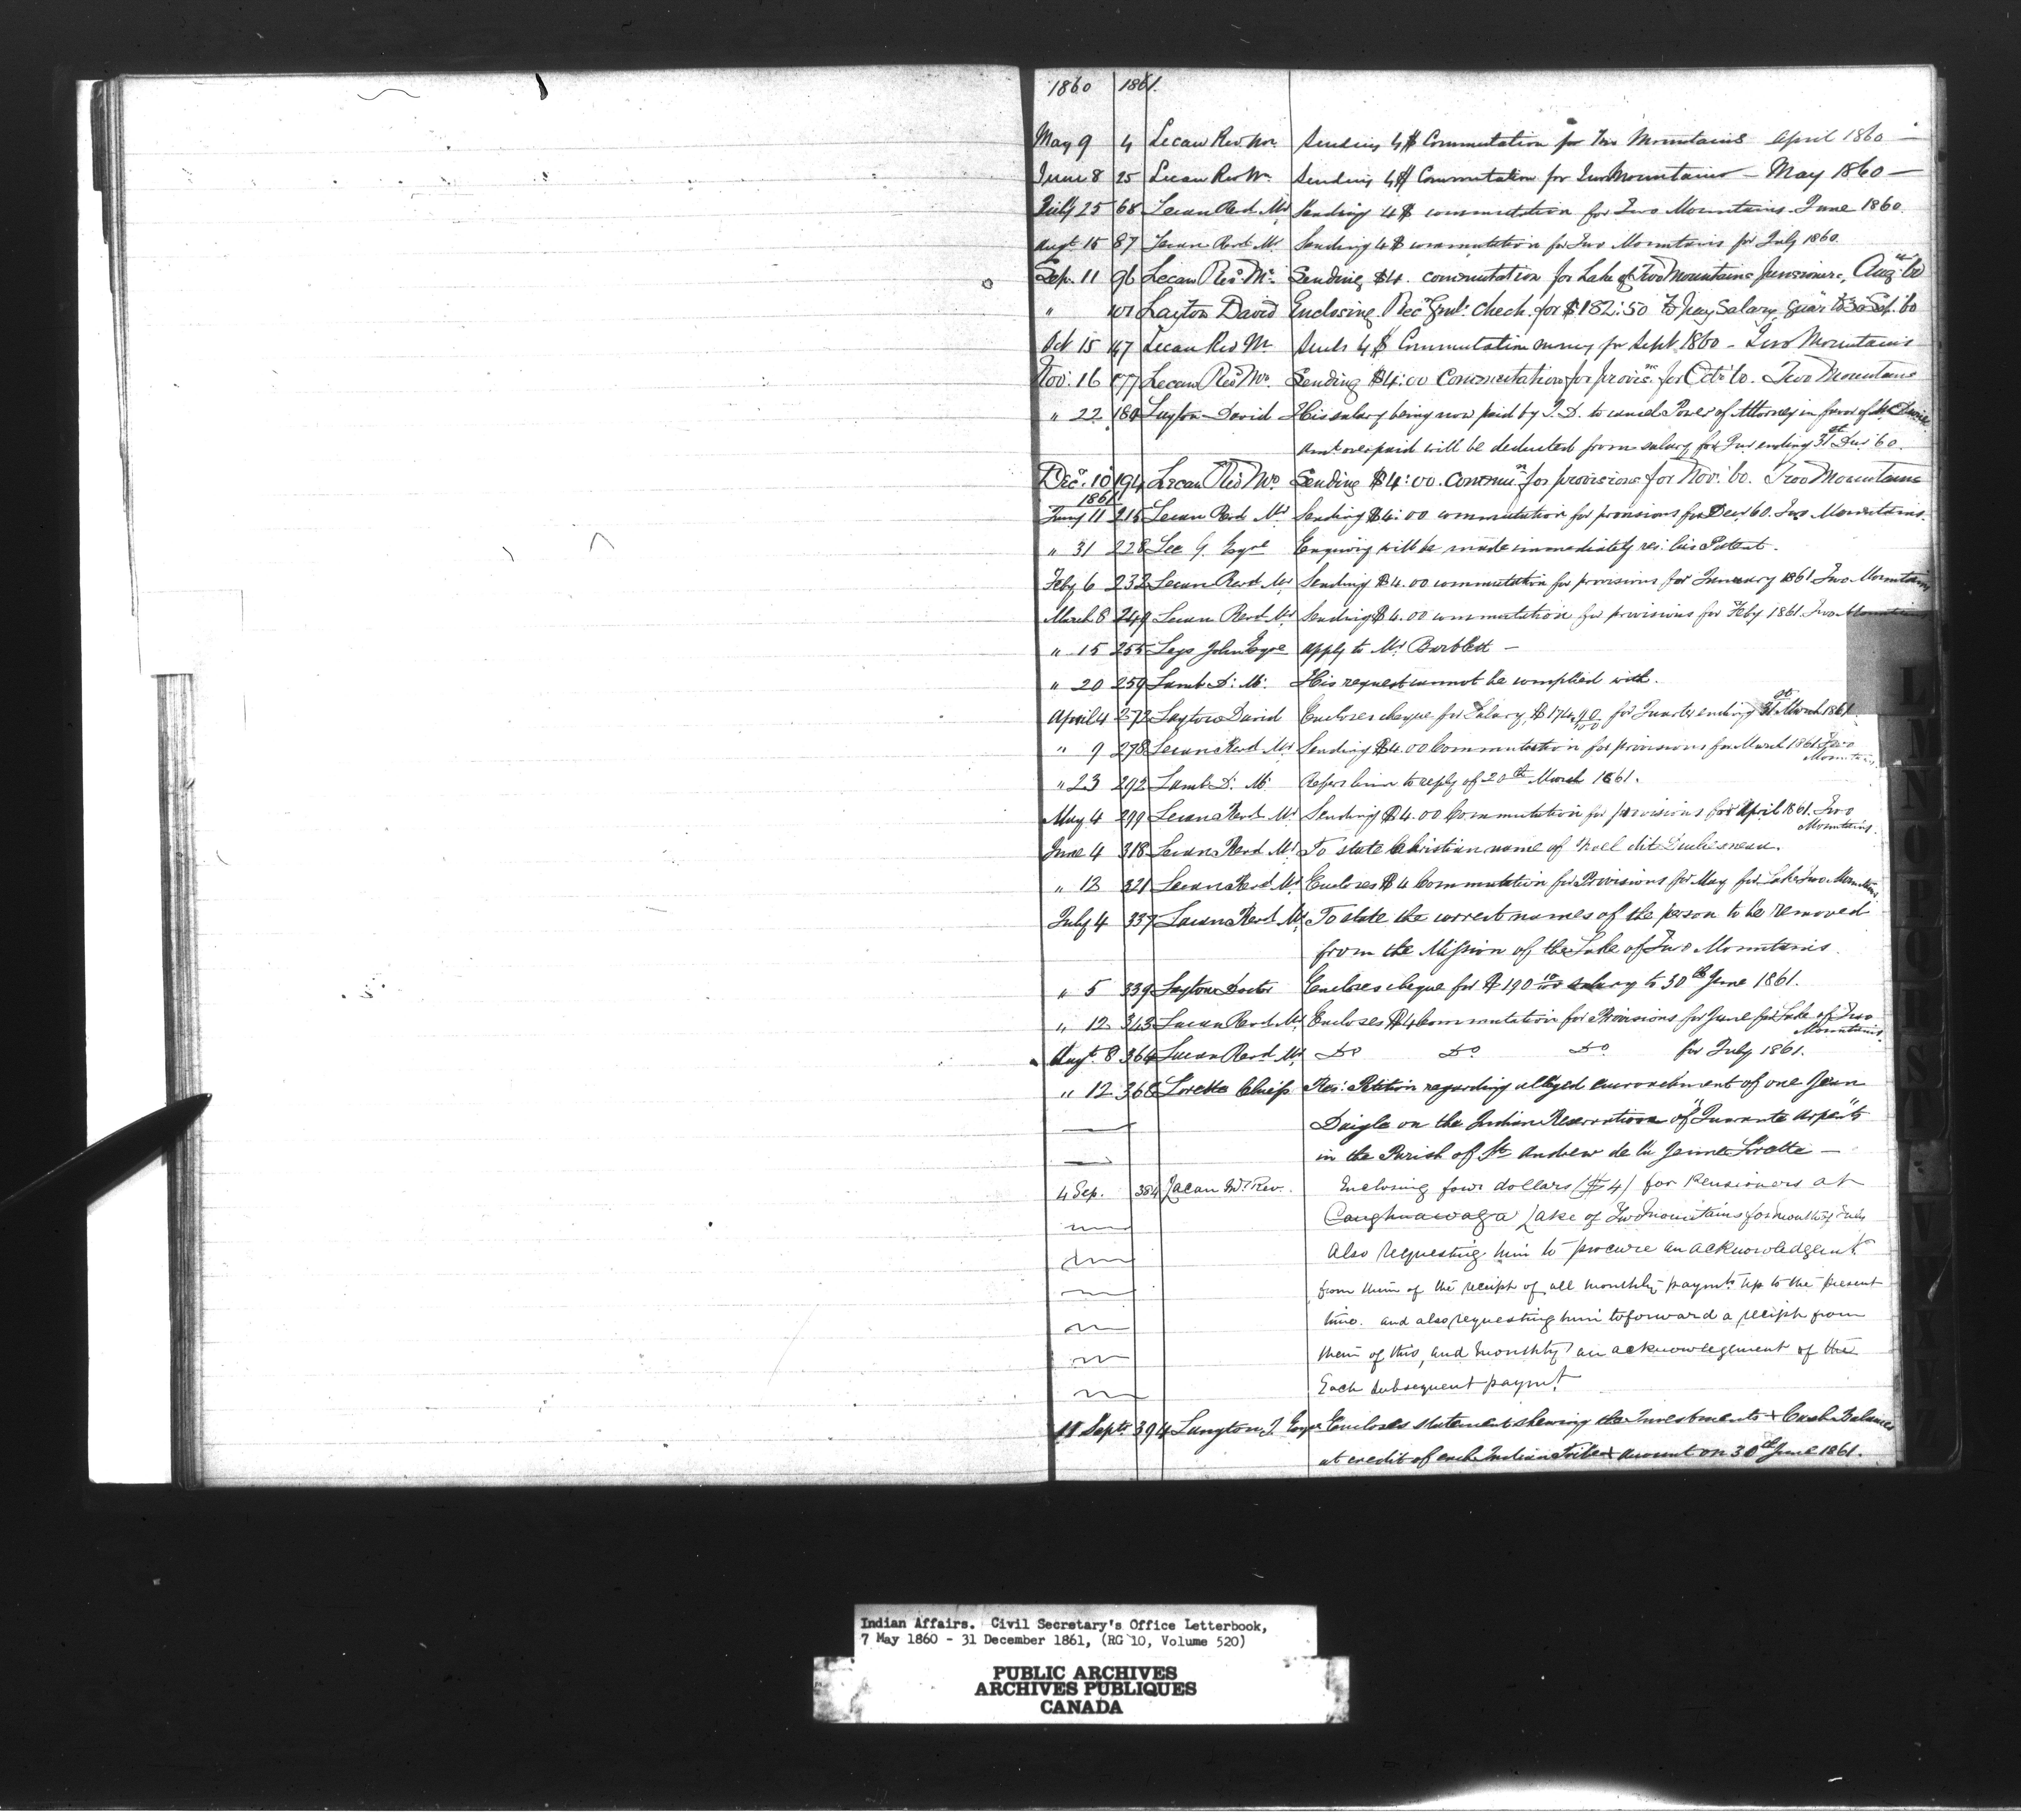 1860 1861.
May 9 4 Lecan Rev. Mr. Sending 4$ Commutation for Two Mountains April 1860 —
June 8 25 Lecan Rev Mr. Sending 4$ Commutation for Two Mountains — May 1860 —
July 25 68 Lecan Revd Mr Sending 4$ commutation for Two Mountains June 1860.
Augt 15 87 Lecan Revd Mr. Sending 4$ commutation for Two Mountains for July 1860.
Sep. 11 96 Lecan Revd Mr. Sending $4. commutation for Lake of Two Mountains Pensioners, Aug. 60
" 101 Layton David Enclosing Rec. Genl. Check for $182:50 to pay Salary, Quar to 30 Sep. '60
Oct 15 147 Lecan Rev Mr Sends 4$ Commutation money for Sept 1860 — Two Mountains
Nov. 16 177 Lecan Revd Mr. Sending $4:00 Commutation for provis. for Oct. '60. Two Mountains
" 22 180 Layton David His salary being now paid by I. D. to cancel Power of Attorney in favor of Mr.
amt overpaid will be deducted from salary for Qur ending 31st Decr '60.
Decr. 10 194 Lecan Revd Mr. Sending $4:00. Commun for provisions for Nov. '60. Two Mountains
1861
Jany 11 215 Lecan Revd Mr Sending $4:00 commutation for provisions for Decr 60. Two Mountains.
" 31 228 Lee G. Esqre Enquiry will be made immediately res: his Patent.
Feby 6 232 Lecan Revd Mr Sending $4.00 commutation for provisions for January 1861 Two Mountains
March 8 249 Lecan Revd Mr. Sending $4.00 commutation for provisions for Feby 1861. Two Mountains
" 15 255 Leys John Esqre Apply to Mr Bartlett —
" 20 259 Lamb D: Mr. His request cannot be complied with.
April 4 272 Layton David Encloses cheque for Salary, $174 40/100 for Quarter ending 31st March 1861
" 9 278 Lecan Revd Mr. Sending $4.00 Commutation for provisions for March 1861 Two
Mountains.
" 23 292 Lamb D: Mr. Refers him to reply of 20th March 1861.
May 4 299 Lecan Revd Mr Sending $4.00 Commutation for provisions for April 1861. Two
Mountains.
June 4 318 Lecan Revd Mr. To state Christian name of Noel dit Duchesneau.
" 12 321 Lecan Revd Mr. Encloses $4 Commutation for Provisions for May for Lake Two Mountains
July 4 337 Lacan Revd Mr. To state the correct names of the person to be removed
from the Mission of the Lake of Two Mountains.
" 5 339 Layton Doctor Encloses cheque for $190 10/100 salary to 30th June 1861.
" 12 343 Lacan Revd Mr. Encloses $4 Commutation for Provisions for June for Lake of Two
Mountains.
Augt. 8 364 Lacan Revd Mr. Do Do Do for July 1861.
" 12 368 Lorette Chiefs Res: Petition regarding alleged encroachment of one Jean
Daigle on the Indian Reservation of "Quarante Arpents"
in the Parish of St Andrew de la Jeune Lorette —
4 Sep. 384 Lacan Mr. Rev. Enclosing four dollars ($4) for Pensioners at
Caughnawaga Lake of Two Mountains for month of July
Also requesting him to procure an acknowledgent
from them of the receipt of all monthly paymts up to the present
time. and also requesting him to forward a receipt from
them of this, and monthly an acknowlegement of the
Each subsequent paymt.
11 Septr 394 Langton J. Esqre Encloses statement shewing the Investments & Cash Balances
at credit of each Indian Tribe & account on 30th June 1861.
L
M
N
O
P
Q
R
S
V
W
X
Y
Z
Indian Affairs. Civil Secretary's Office Letterbook,
7 May 1860 - 31 December 1861, (RG 10, Volume 520)
PUBLIC ARCHIVES
ARCHIVES PUBLIQUES
CANADA